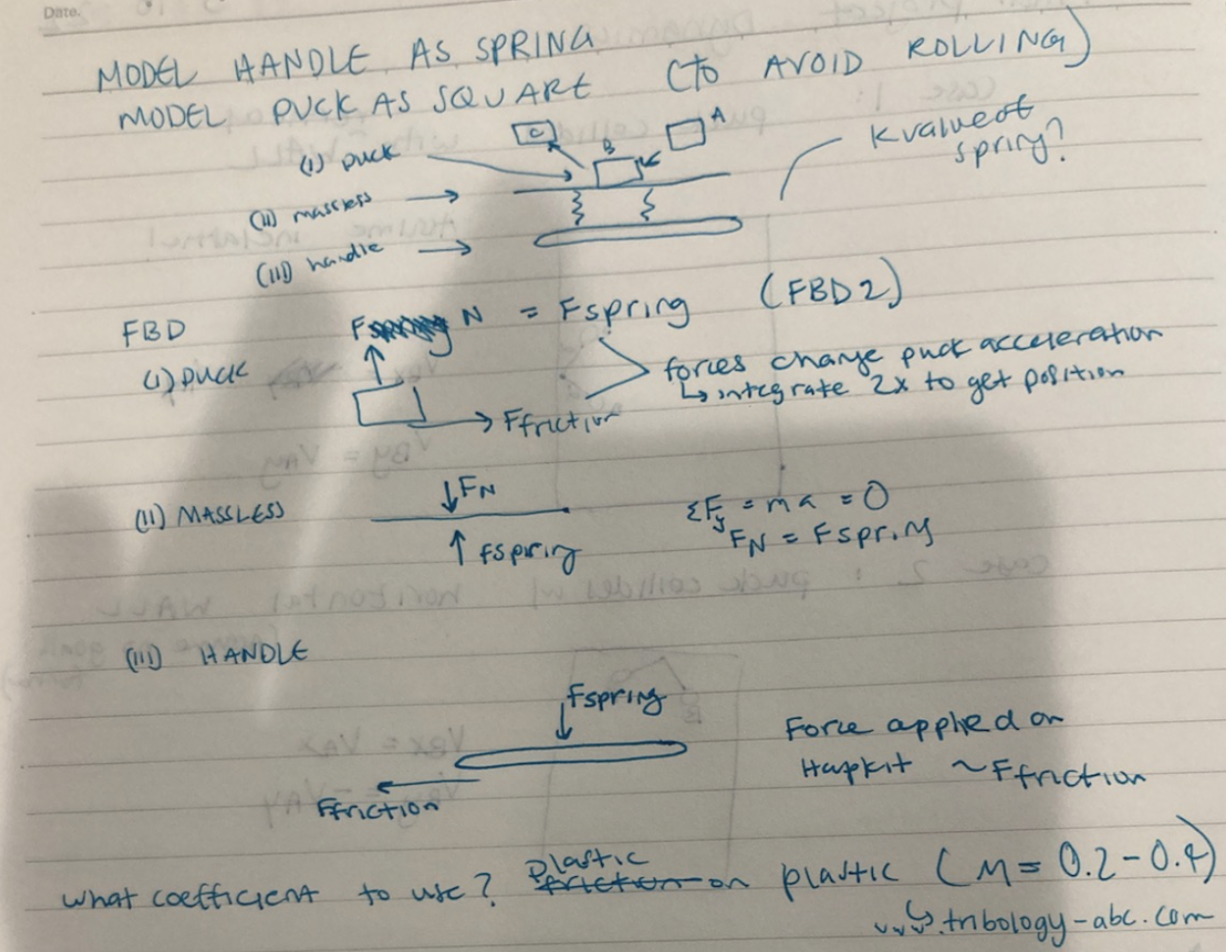 Date.
MODEL HANDLE AS SPRING
MODEL PUCK AS SQUARE (TO AVOID ROLLING)
C B A
K value of spring?
(I) puck
(II) massless
(III) handle
FBD
N = Fspring (FBD2)
(I) PUCK
forces change puck acceleration
↳ integrate 2x to get position
Ffriction
(II) MASSLESS
↓FN
↑ Fspring
ΣFy = ma = 0
FN = Fspring
(III) HANDLE
Fspring
Ffriction
Force applied on
Hapkit ~Ffriction
what coefficient to use? plastic on plastic (M = 0.2-0.4)
↳ tribology-abc.com